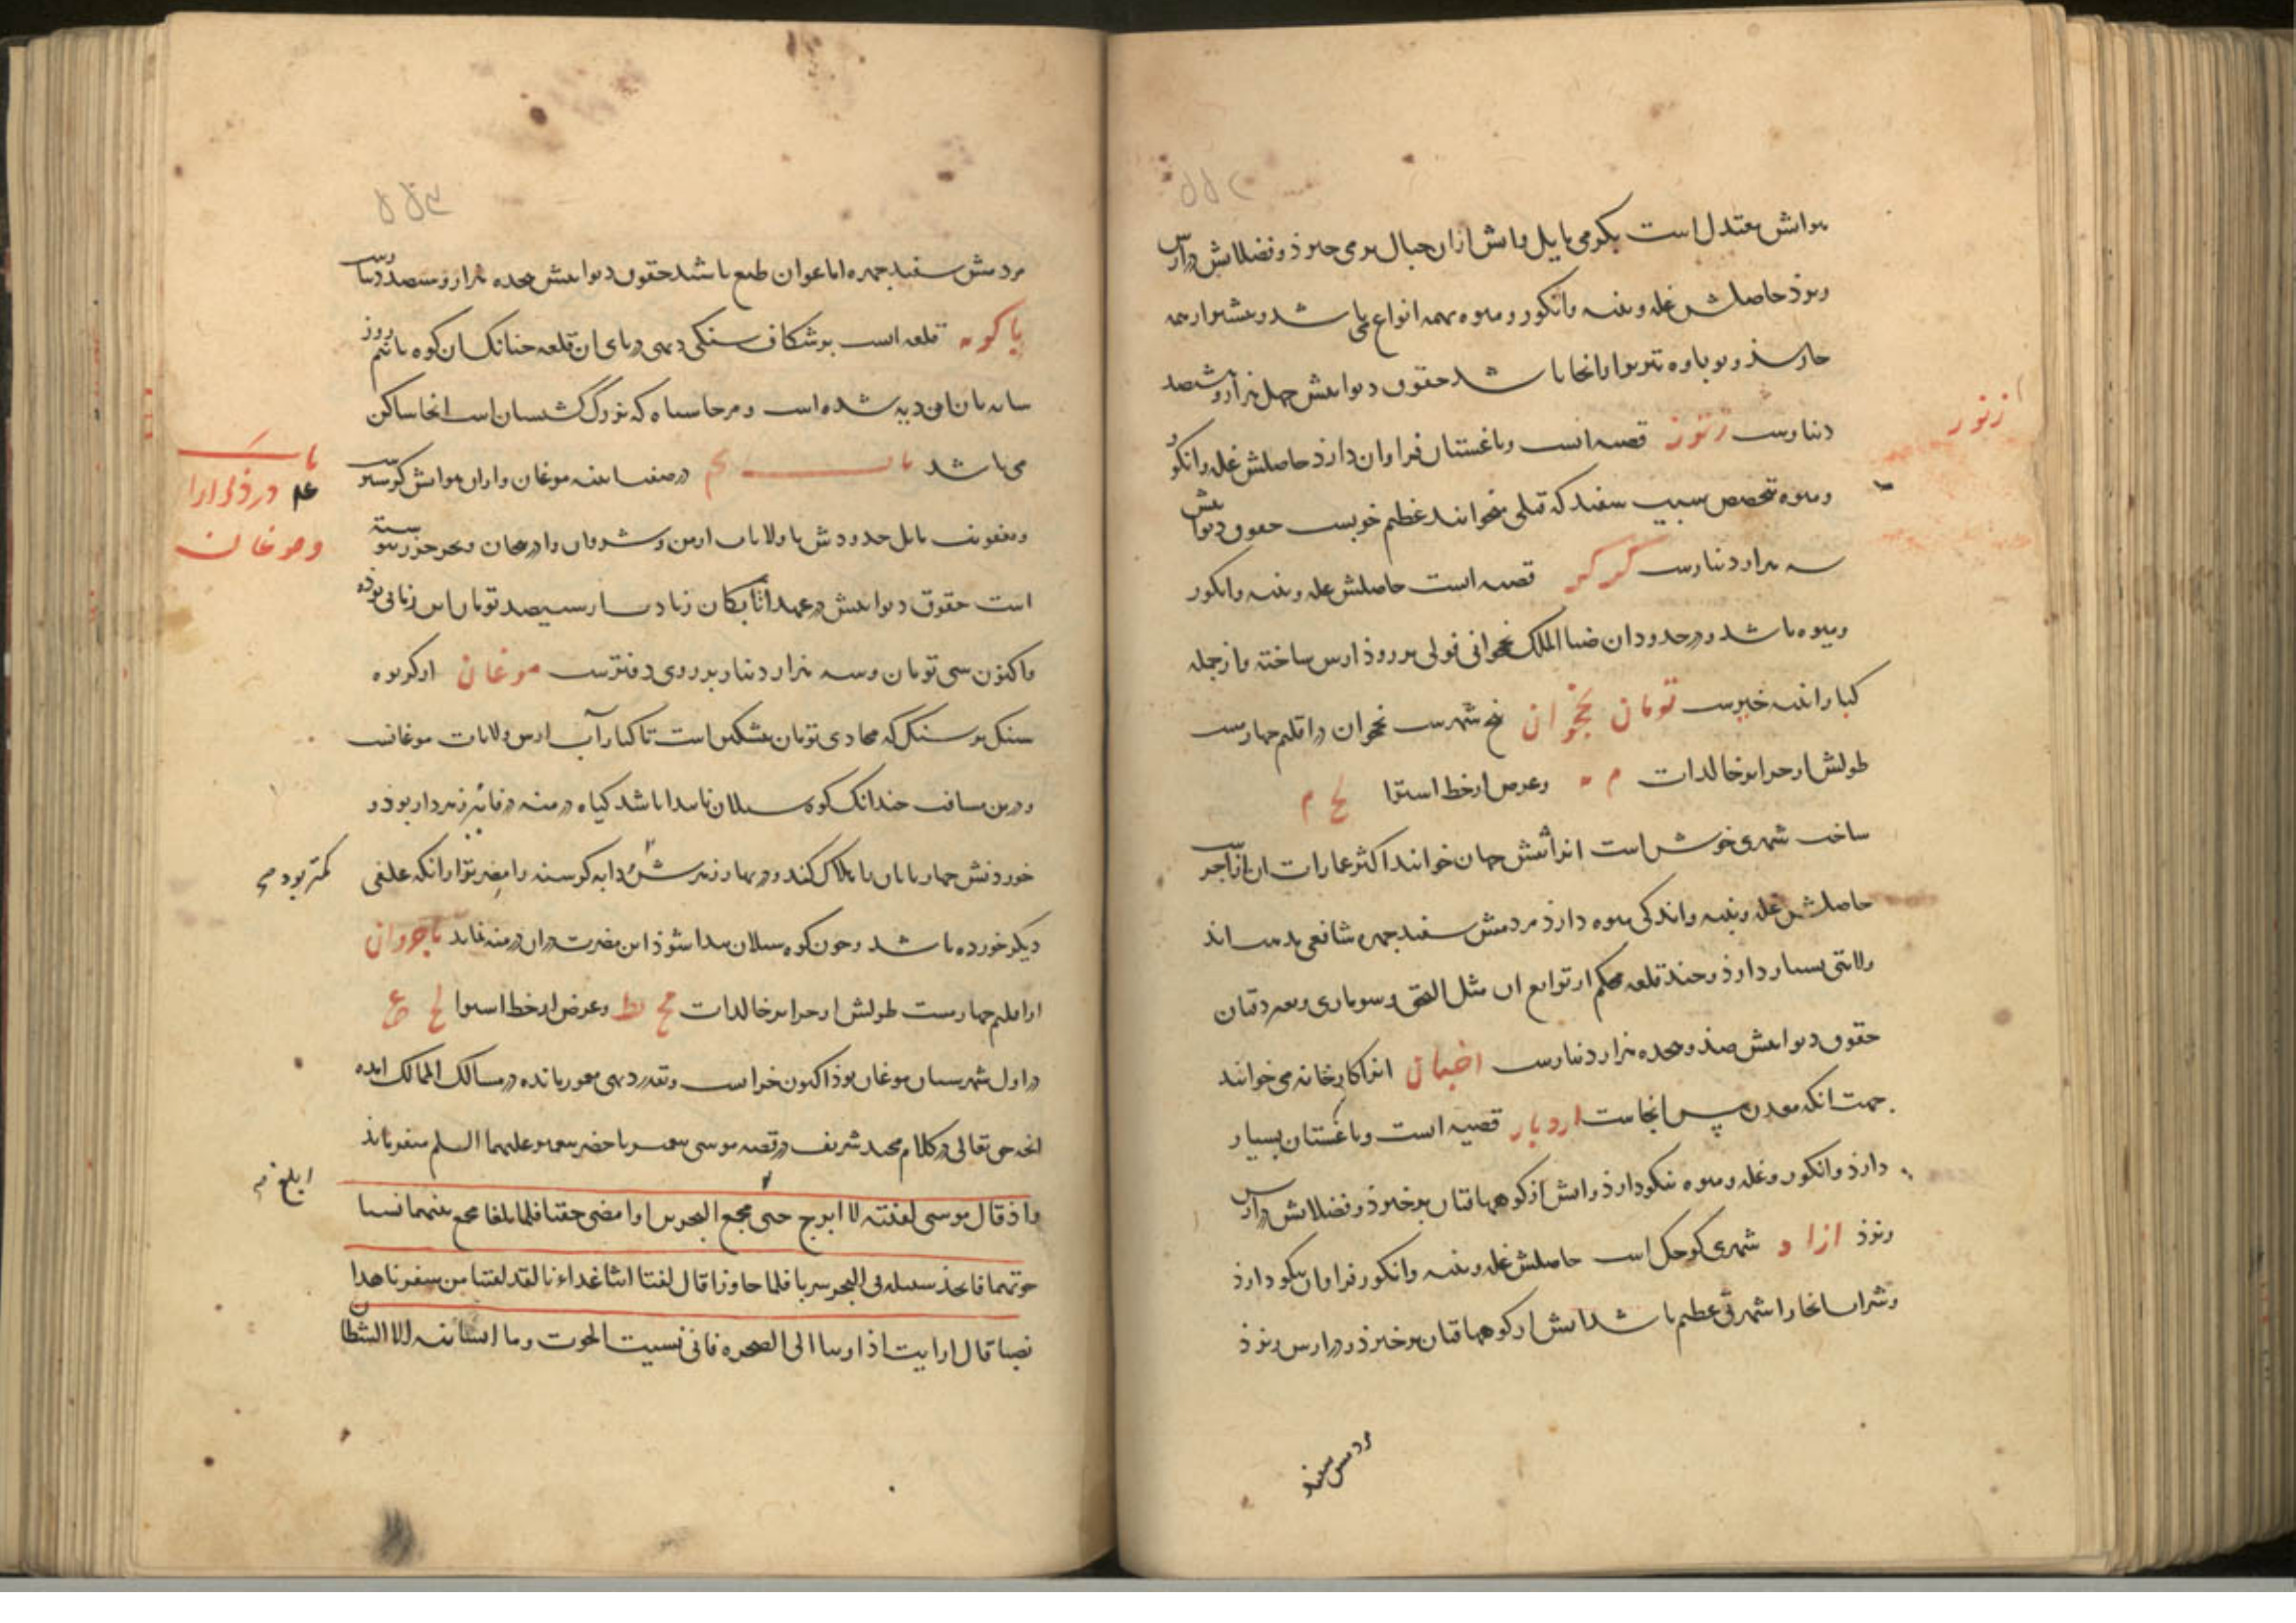 هواش معتدل است بگرمی مایل و ابش ازان جبال برمی خیزذ و فضلابش در ارس
ریزذ حاصلش غله و پنبه و انکور و میوه همه انواع می باشد و پیشتر از همه
جا رسذ و نوباوه تبریز را از انجا باشد حقوق دیوانیش چهل هزار و ششصد
دینارست زنوز قصبه است و باغستان فراوان دارذ حاصلش غله و انکور
زنوز
و میوه بتخصیص سیب سفید که قبلی می خوانند عظیم خوبست حقوق دیوانیش
سه هزار دینارست کرکر قصبه است حاصلش غله و پنبه و انکور
و میوه باشد و در حدود ان ضیا الملک نخجوانی پولی بر روذ ارس ساخته و از جمله
کبار ابنیه خیرست تومان نخجوان پنج شهرست نخجوان از اقلیم چهارست
طولش از جزایر خالدات و عرض از خط استوا لح م
ساخت شهری خوش است انرا نقش جهان خوانند اکثر عمارات ان از آجرست
حاصلش غله و پنبه و اندکی میوه دارذ مردمش سفید چهره شافعی مذهب اند
ولایتی بسیار دارذ و چند قلعه محکم از توابع ان مثل النجق و سورماری و قبان
حقوق دیوانیش صذ و هجده هزار دینارست انرا کارخانه می خوانند
جهت انکه معدن مس انجاست اردباد قصبه است و باغستان بسیار
دارذ و انکور و غله و میوه نیکو دارذ و ابش از کوههای قبان برخیزذ و فضلابش در ارس
ریزذ ازاد شهری کوچک است حاصلش غله و پنبه و انکور فراوان نیکو دارذ
و شراب انجا را شهرتی عظیم باشد ابش از کوههای قبان برخیزذ و در ارس ریزذ
مردمش سفید
مردمش سفید چهره اما عوان طبع باشند حقوق دیوانیش هجده هزار و سیصد دینارست
باکویه قلعه است بر شکاف سنکی دیهی در پای ان قلعه چنانک ان کوه تا نیم روز
سایه بان ان دیه شده است و مرحاسیاه که بزرگ کشیشان است انجا ساکن
می باشد باب در صفت بقیه موغان و اران هوایش کرمسیر
باب در ذکر اران
وموغان
و بعفونت مایل حدودش با ولایات ارمن و شروان و اذربیجان و بحر خزر پیوسته
است حقوق دیوانیش در عهد اتابکان زیادت از سیصد تومان این زمانی بوذه
و اکنون سی تومان و سه هزار دینار بر روی دفترست موغان از کریوه
سنک بر سنک که محاذی تومان مشکین است تا کنار آب ارس ولایات موغانست
و درین مسافت چندانک کوه سبلان ناپیدا باشد کیاه درمنه در پائیز زهردار بوذ و
خوردنش چهارپایان را هلاک کند و در بهار زهرش دابه کرسنه را مضرتر از انکه علفی
کمتر بود و
دیکر خورده باشد و چون کوه سبلان پیدا شوذ این مضرت دران درمنه نماند باجروان
از اقلیم چهارست طولش از جزایر خالدات و عرض از خط استوا لح
در اول شهرستان موغان بوذ اکنون خرابست و بقدر دیهی معمور مانده در مسالک الممالک امده
انچه حق تعالی در کلام مجید شریف در قصه موسی پیغمبر با خضر پیغمبر علیهما السلم میفرماید
و اذ قال موسی لفتیه لا ابرح حتی ابلغ مجمع البحرین او امضی حقبا فلما بلغا مجمع بینهما نسیا
حوتهما فاتخذ سبیله فی البحر سربا فلما جاوزا قال لفتیه اتنا غداءنا لقد لقینا من سفرنا هذا
نصبا قال ارایت اذ اوینا الی الصخره فانی نسیت الحوت و ما انسانیه الا الشیطان